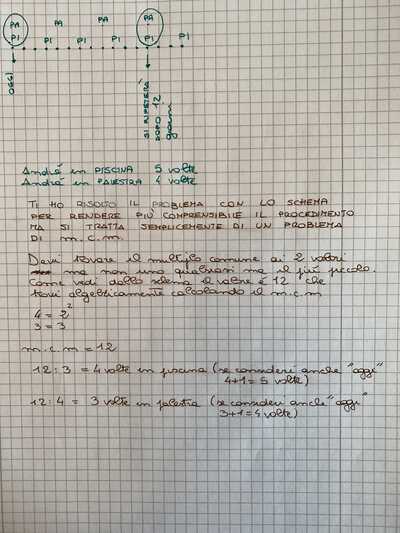 PA PA PA PA
PI PI PI PI PI PI
OGGI
SI RIPETERÀ
DOPO 12
giorni
Andrà in PISCINA 5 volte
Andrà in PALESTRA 4 volte
TI HO RISOLTO IL PROBLEMA CON LO SCHEMA
PER RENDERE PIÙ COMPRENSIBILE IL PROCEDIMENTO
MA SI TRATTA SEMPLICEMENTE DI UN PROBLEMA
DI m.c.m.
Devi trovare il multiplo comune ai 2 valori
ma non uno qualsiasi ma il più piccolo.
Come vedi dallo schema il valore è 12 che
trovi algebricamente calcolando il m.c.m
4 = 2²
3 = 3
m.c.m = 12
12 : 3 = 4 volte in piscina (se consideri anche "oggi"
4+1 = 5 volte)
12 : 4 = 3 volte in palestra (se consideri anche "oggi"
3+1 = 4 volte)